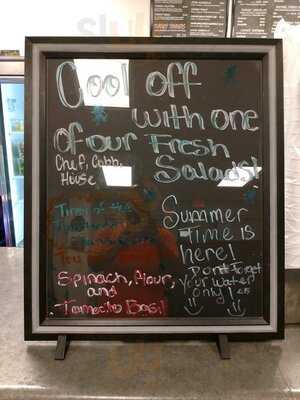 Cool off
with one
of our Fresh
Salads!
Chef, Cobb,
House
Summer
Time is
here!
Don't Forget
your water
only!
Tired of the
Spinach, Flour,
and
Tomato Basil